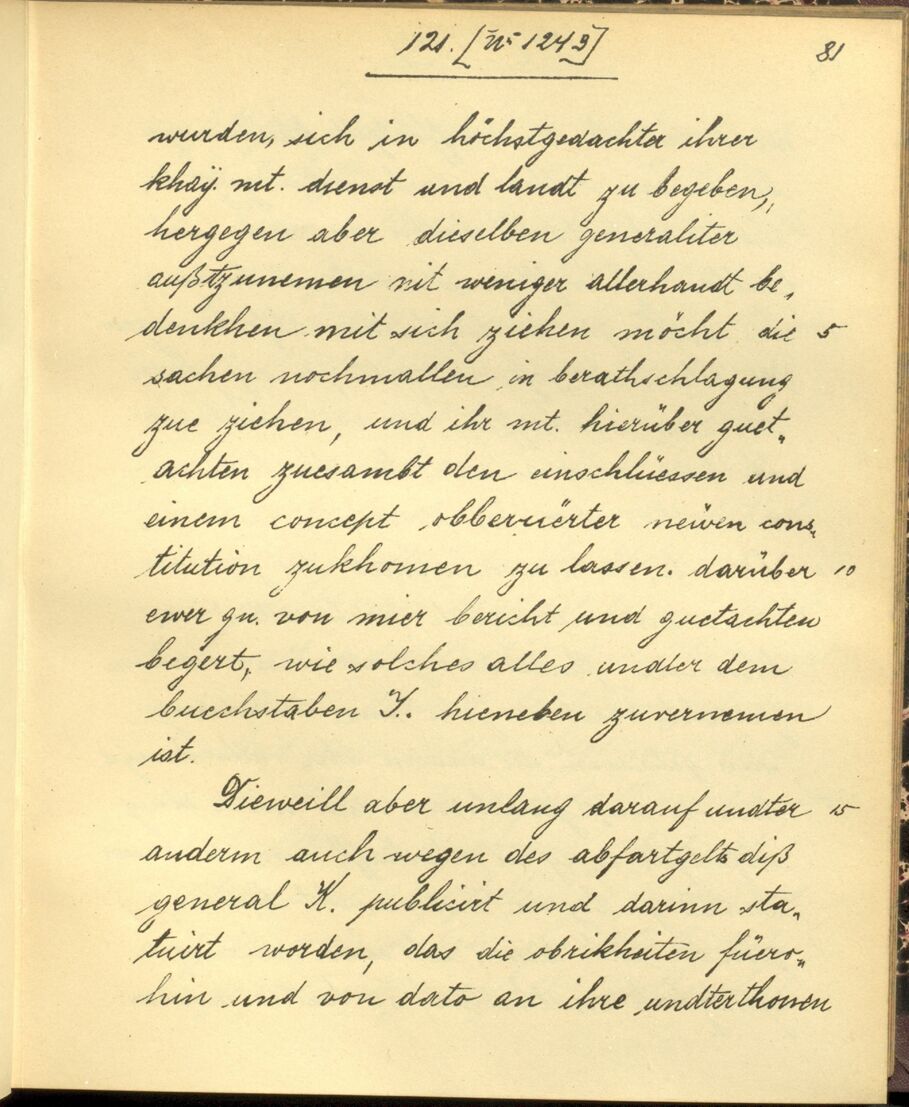 121. [Nr 1249]
81
wurden, sich in höchstgedachter ihrer
khaÿ. mt. dienst und landt zu begeben,
hergegen aber dieselben generaliter
außtzunemen nit weniger allerhandt be„
denkhen mit sich ziehen möcht die 5
sachen nochmallen in berathschlagung
zue ziehen, und ihr mt. hierüber guet„
achten zuesambt den einschlüessen und
einem concept obberüerter neüen cons„
titution zukhomen zu lassen. darüber 10
ewer gn. von mier bericht und guetachten
begert, wie solches alles undter dem
buechstaben I. hieneben zuvernemen
ist.
Dieweill aber unlang darauf undter 15
anderm auch wegen des abfartgelts diß
general K. publicirt und darinn sta„
tuirt worden, das die obrikheiten füero„
hin und von dato an ihre undterthonen